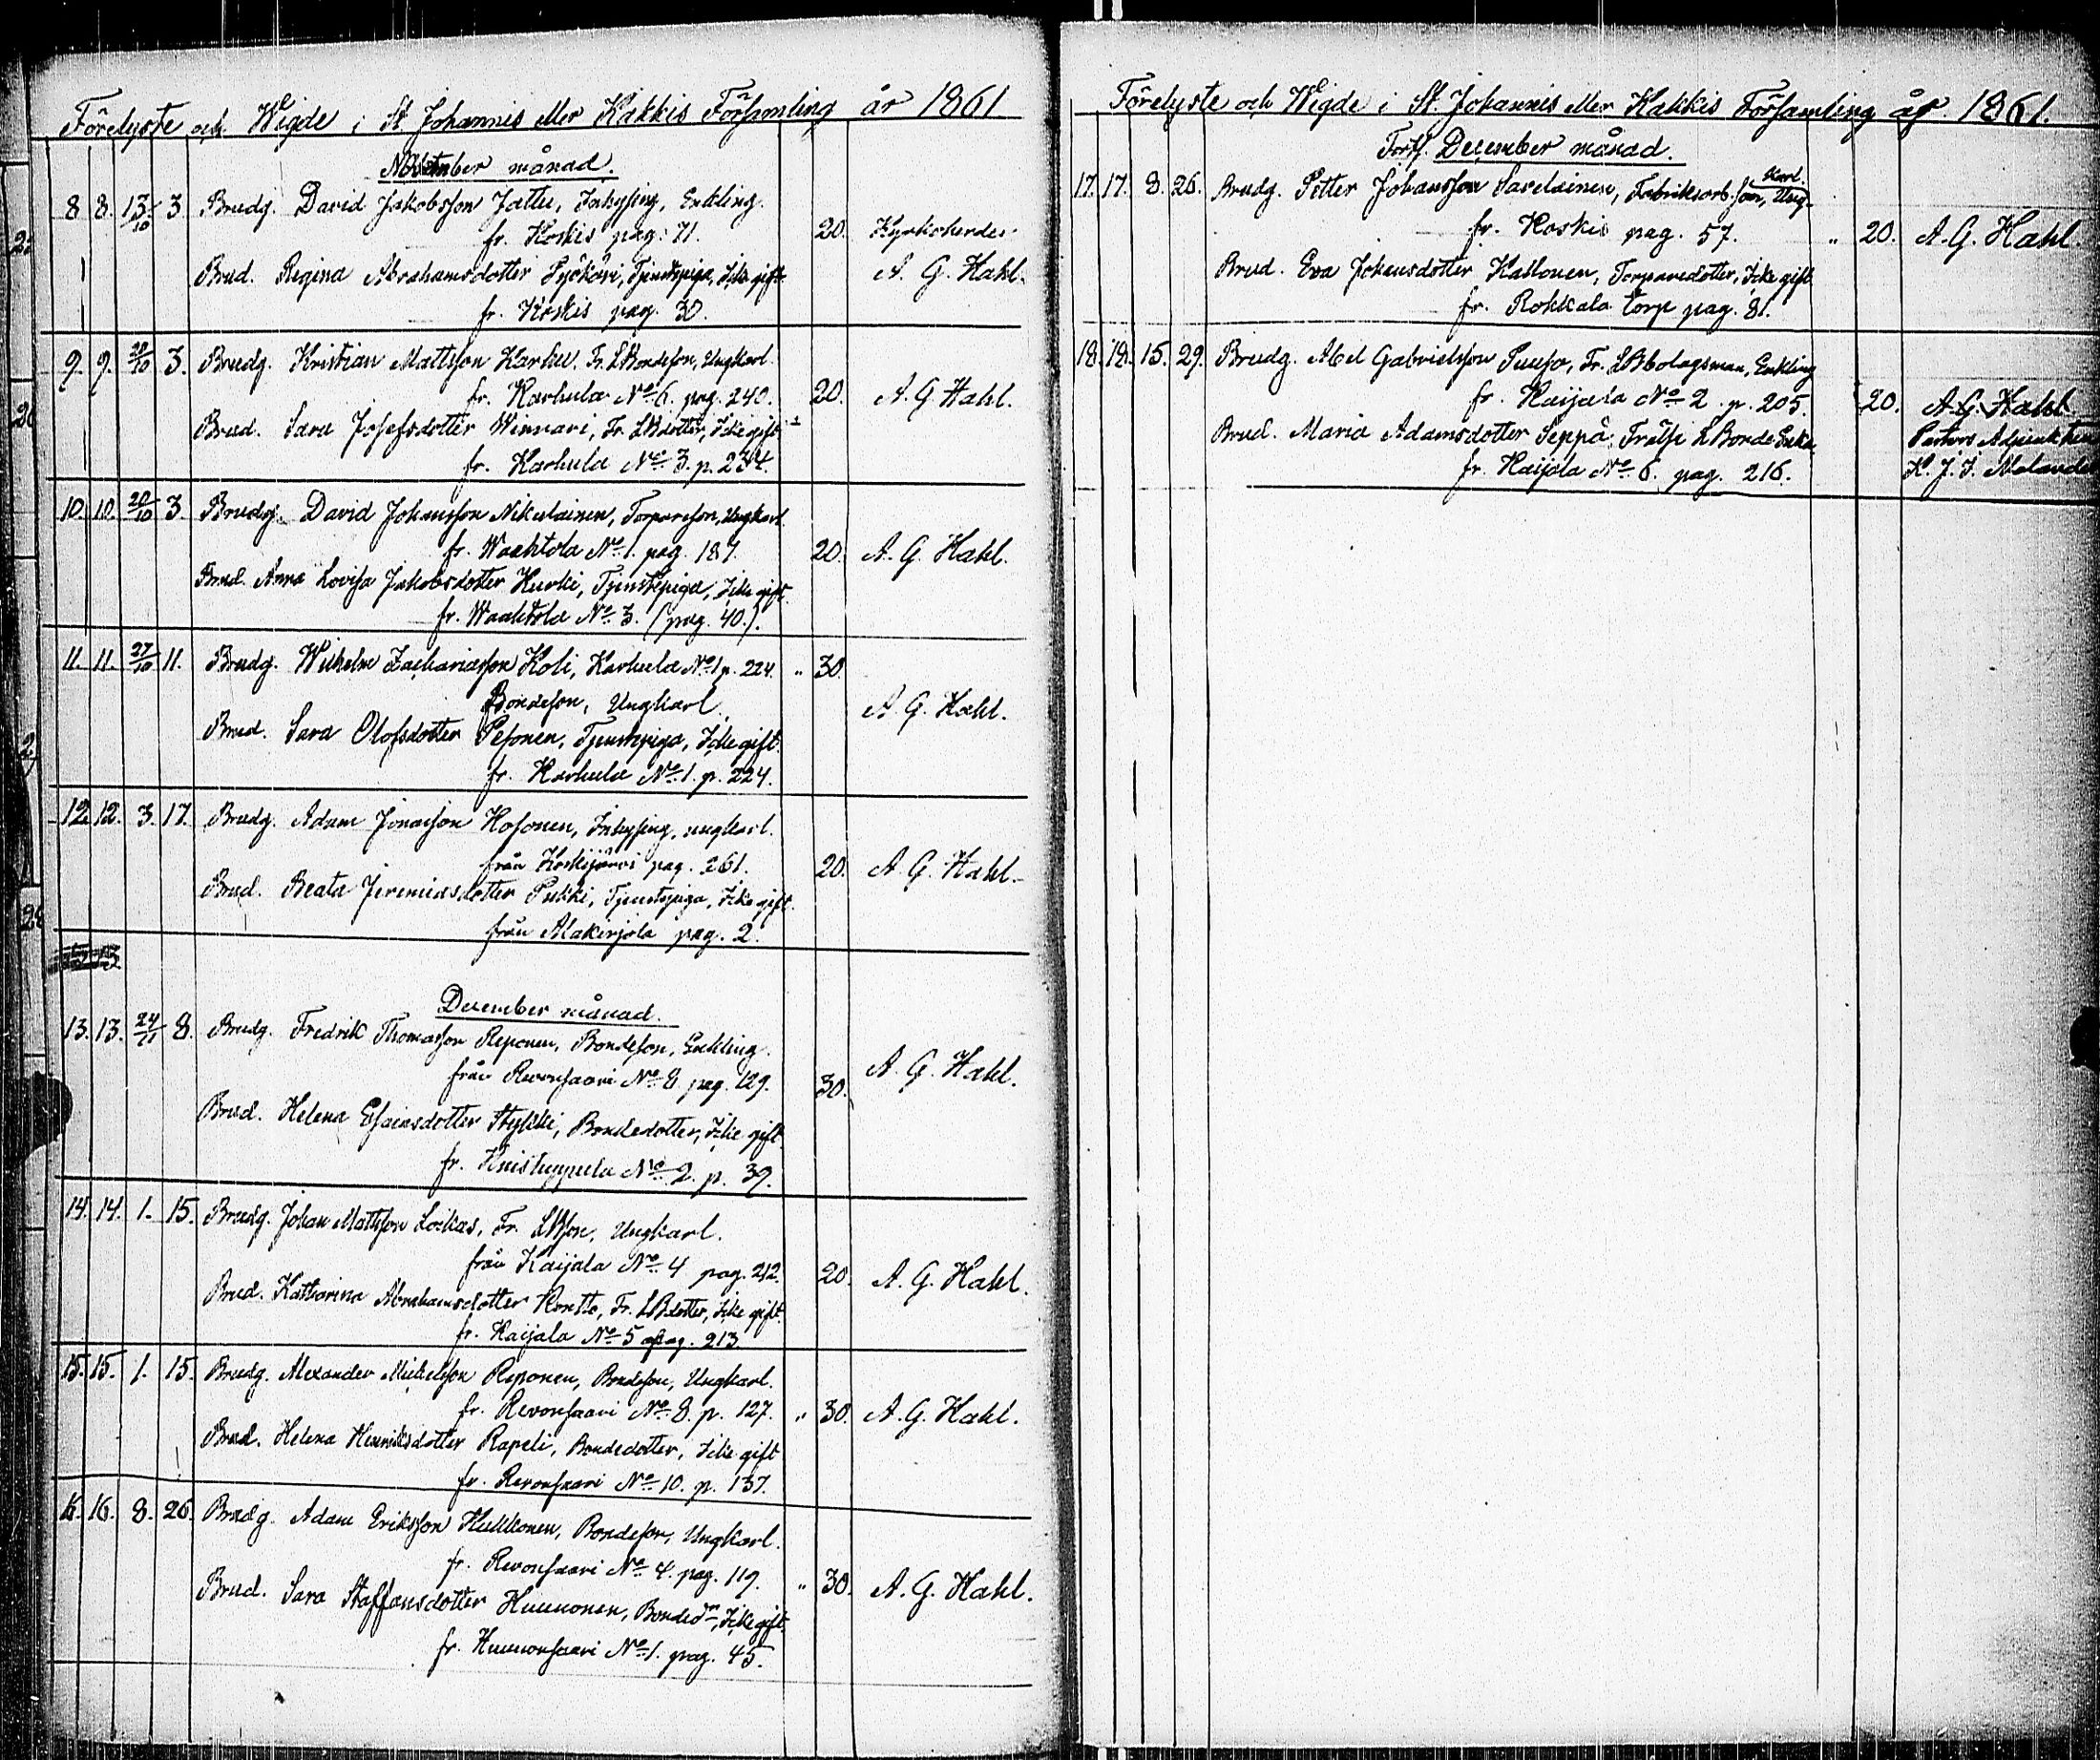 Förelyste och Wigde i St Johannis eller Kakkis Församling år 1861.
November månad.
8 8. 13/10 3 Brudg. David Jakobsson Jattu, Inhysing, Enkling.
fr. Koskis pag: 71. 20. Kyrkoherden
Brud. Regina Abrahamsdotter Pyököri, Tjenstepiga, Icke gift A. G. Hahl.
fr. Koskis pag. 30.
9. 9. 20/10 3. Brudg. Kristian Mattsson Karhu, Fr. LBondeson, Ungkarl.
fr. Karhula No 6. pag. 240. 20. A. G Hahl.
Brud. Sara Josefsdotter Winnari, Fr LBdotter, Icke gift
fr. Karhula No 3. p. 234.
10. 10. 20/10 3. Brudg. David Johansson Nikulainen, Torpareson, Ungkarl.
fr. Waahtola No 1. pag. 187. 20. A. G. Hahl.
Brud. Anna Lovisa Jakobsdotter Hurki, Tjenstepiga, Icke gift.
fr. Waahtola No 3. (pag. 40.).
11. 11. 27/10 11. Brudg. Wilhelm Zachariasson Koli, Karhula No 1 p. 224. " 30.
Bondeson, Ungkarl.
Brud. Sara Olofsdotter Pesonen, Tjenstepiga, Icke gift A. G. Hahl.
fr. Karhula No 1. p. 224.
12. 12. 3. 17. Brudg. Adam Jonasson Hosonen, Inhysing, ungkarl.
från Koskijärvi pag. 261. 20. A. G. Hahl.
Brud. Beata Jeremiasdotter Pukki, Tjenstepiga, Icke gift.
från Alakirjola pag. 2.
December månad.
13. 13. 24/11 8. Brudg. Fredrik Thomasson Reponen, Bondeson, Enkling.
från Revonsaari No 8 pag. 129. 30. A. G. Hahl.
Brud. Helena Esaiasdotter Stykki, Bondedotter, Icke gift
fr. No 2. p. 39.
14. 14. 1. 15. Brudg. Johan Mattsson Loikas, Fr. LBson, Ungkarl.
från Kaijala No 4 pag. 212. 20. A. G. Hahl.
Brud. Katharina Abrahamsdotter Kontto, Fr. LBdotter, Icke gift.
fr. Kaijala No 5 pag. 213.
15. 15. 1. 15. Brudg. Alexander Mickelsson Reponen, Bondeson, Ungkarl.
fr. Revonsaari No 8. p. 127. " 30. A. G. Hahl.
Brud. Helena Henriksdotter Rapeli, Bondedotter, Icke gift
fr. Revonsaari No 10. p. 137.
16. 16. 8. 26. Brudg. Adam Eriksson Hukkonen, Bondeson, Ungkarl.
fr. Revonsaari No 4. pag. 119. " 30. A. G. Hahl.
Brud. Sara Staffansdotter Huunonen, Bondedr, Icke gift.
fr. Huunonsaari No 1. pag. 45.
Förelyste och Wigde i St. Johannis eller Kakkis Församling år 1861.
Forts. December månad.
17. 17. 8. 26. Brudg. Petter Johansson Savelainen, Fabriksarb.son, Ungkarl.
fr. Koskis pag. 57. " 20. A. G. Hahl.
Brud. Eva Johansdotter Kallonen, Torparedotter, Icke gift
fr. Rokkala torp pag. 81.
18. 18. 15. 29. Brudg. Abel Gabrielsson Puuso, Fr. LBbolagsman, Enkling
fr. Kaijala No 2. p. 205. 20. A. G. Hahl.
Brud. Maria Adamsdotter Seppä, Frälse LBonde Enka Pastors Adjunkten
fr. Kaijala No 6. pag. 216. K. J. J. Melander